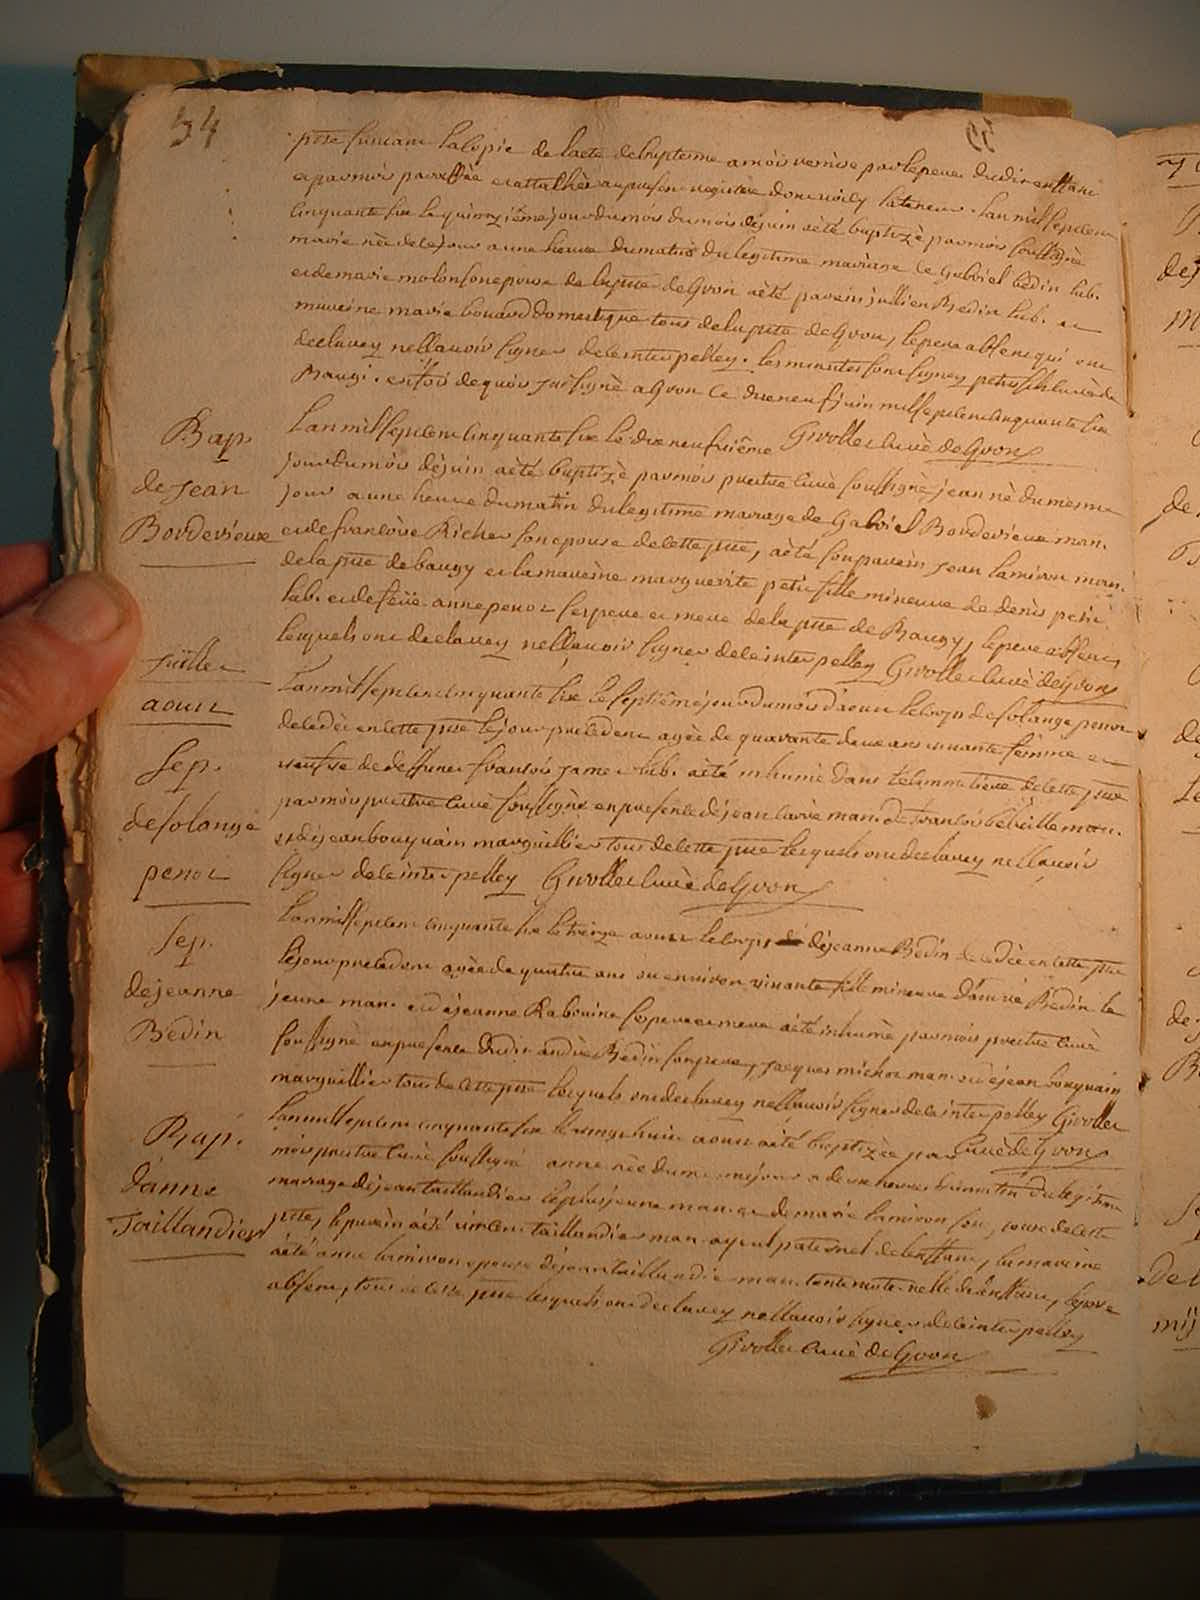 54
ptre suivant la copie de lacte de baptesme a mois remise par le pere dudit enffant
et par mois paraffée et attachée au present registre dont voicy la teneur. lan mil sept cent
cinquante six le quinzième jour du mois du mois dejuin aété baptizé par mois soussigné
marie née de ce jour a une heure du matin du legitime mariage de Gabriel Bedin lab.
et de marie molon son epouse de la ptte de Gvon aété parein jullien Bedin lab. et
mareine marie bouard domestique tous de la ptte de Gvon, le pere absent qui ont
declarez ne sçavoir signer de ce interpellez. les minutes sont signez petit curé de
Baugi. en foi de quoi jai signé a Gvon ce dixneuf juin mil sept cent cinquante six
Givollet curé de Gvon
Bap.
de jean
Bordevieux
Lan mil sept cent cinquante six le dixneufvième
jour du mois dejuin aété baptizé par mois prestre curé soussigné jean né du mesme
jour a une heure du matin du legitime mariage de Gabriel Bordevieux man.
et de francoise Richer son epouse de cette ptte, aété son parein jean lamiron man.
de la ptte de baugy et la mareine marguerite petit fille mineure de denis petit
lab. et de feüe anne penot ses pere et mere de la ptte de Baugy, le pere absent
lesquels ont declarez ne sçavoir signer de ce interpellez Givollet curé de Gvon
juillet
aoust
Sep.
de solange
penot
Lan mil sept cent cinquante six le septième jour du mois daoust le corps de solange penot
decedée en cette ptte le jour precedent agée de quarante deux ans vivante femme et
veufve de deffunct francois jamet lab. aété inhumé dans le cimmetiere de cette ptte
par mois prestre curé soussigné en presence de jean carré man. de francois béville man.
et de jean bouquain marguillier tous de cette ptte lesquels ont declarez ne sçavoir
signer de ce interpellez Givollet curé de Gvon
Sep.
de jeanne
Bedin
Lan mil sept cent cinquante six le treize aoust le corps de jeanne Bedin decedée en cette ptte
le jour precedent agée de quatre ans ou environ vivante fille mineure dandré Bedin le
jeune man. et de jeanne Rabouine ses pere et mere aété inhumé par mois prestre curé
soussigné en presence dudit andré Bedin son pere, jacques michot man. et de jean bouquain
marguillier tous de cette ptte lesquels ont declarez ne sçavoir signer de ce interpellez Givollet
curé de Gvon
Bap.
danne
Taillandier
Lan mil sept cent cinquante six le vingt huit aoust aété baptizée par
mois prestre curé soussigné anne née du mesme jour a deux heures du matin du legitime
mariage de jean taillandier le plus jeune man. et de marie lamiron son epouse de cette
ptte, le parein aété vincent taillandier man. ayeul paternel de lenffant, la mareine
aété anne lamiron epouse de jean taillandier man. tante maternelle de lenffant, le pere
absent, tous de cette ptte lesquels ont declarez ne sçavoir signer de ce interpellez
Givollet curé de Gvon